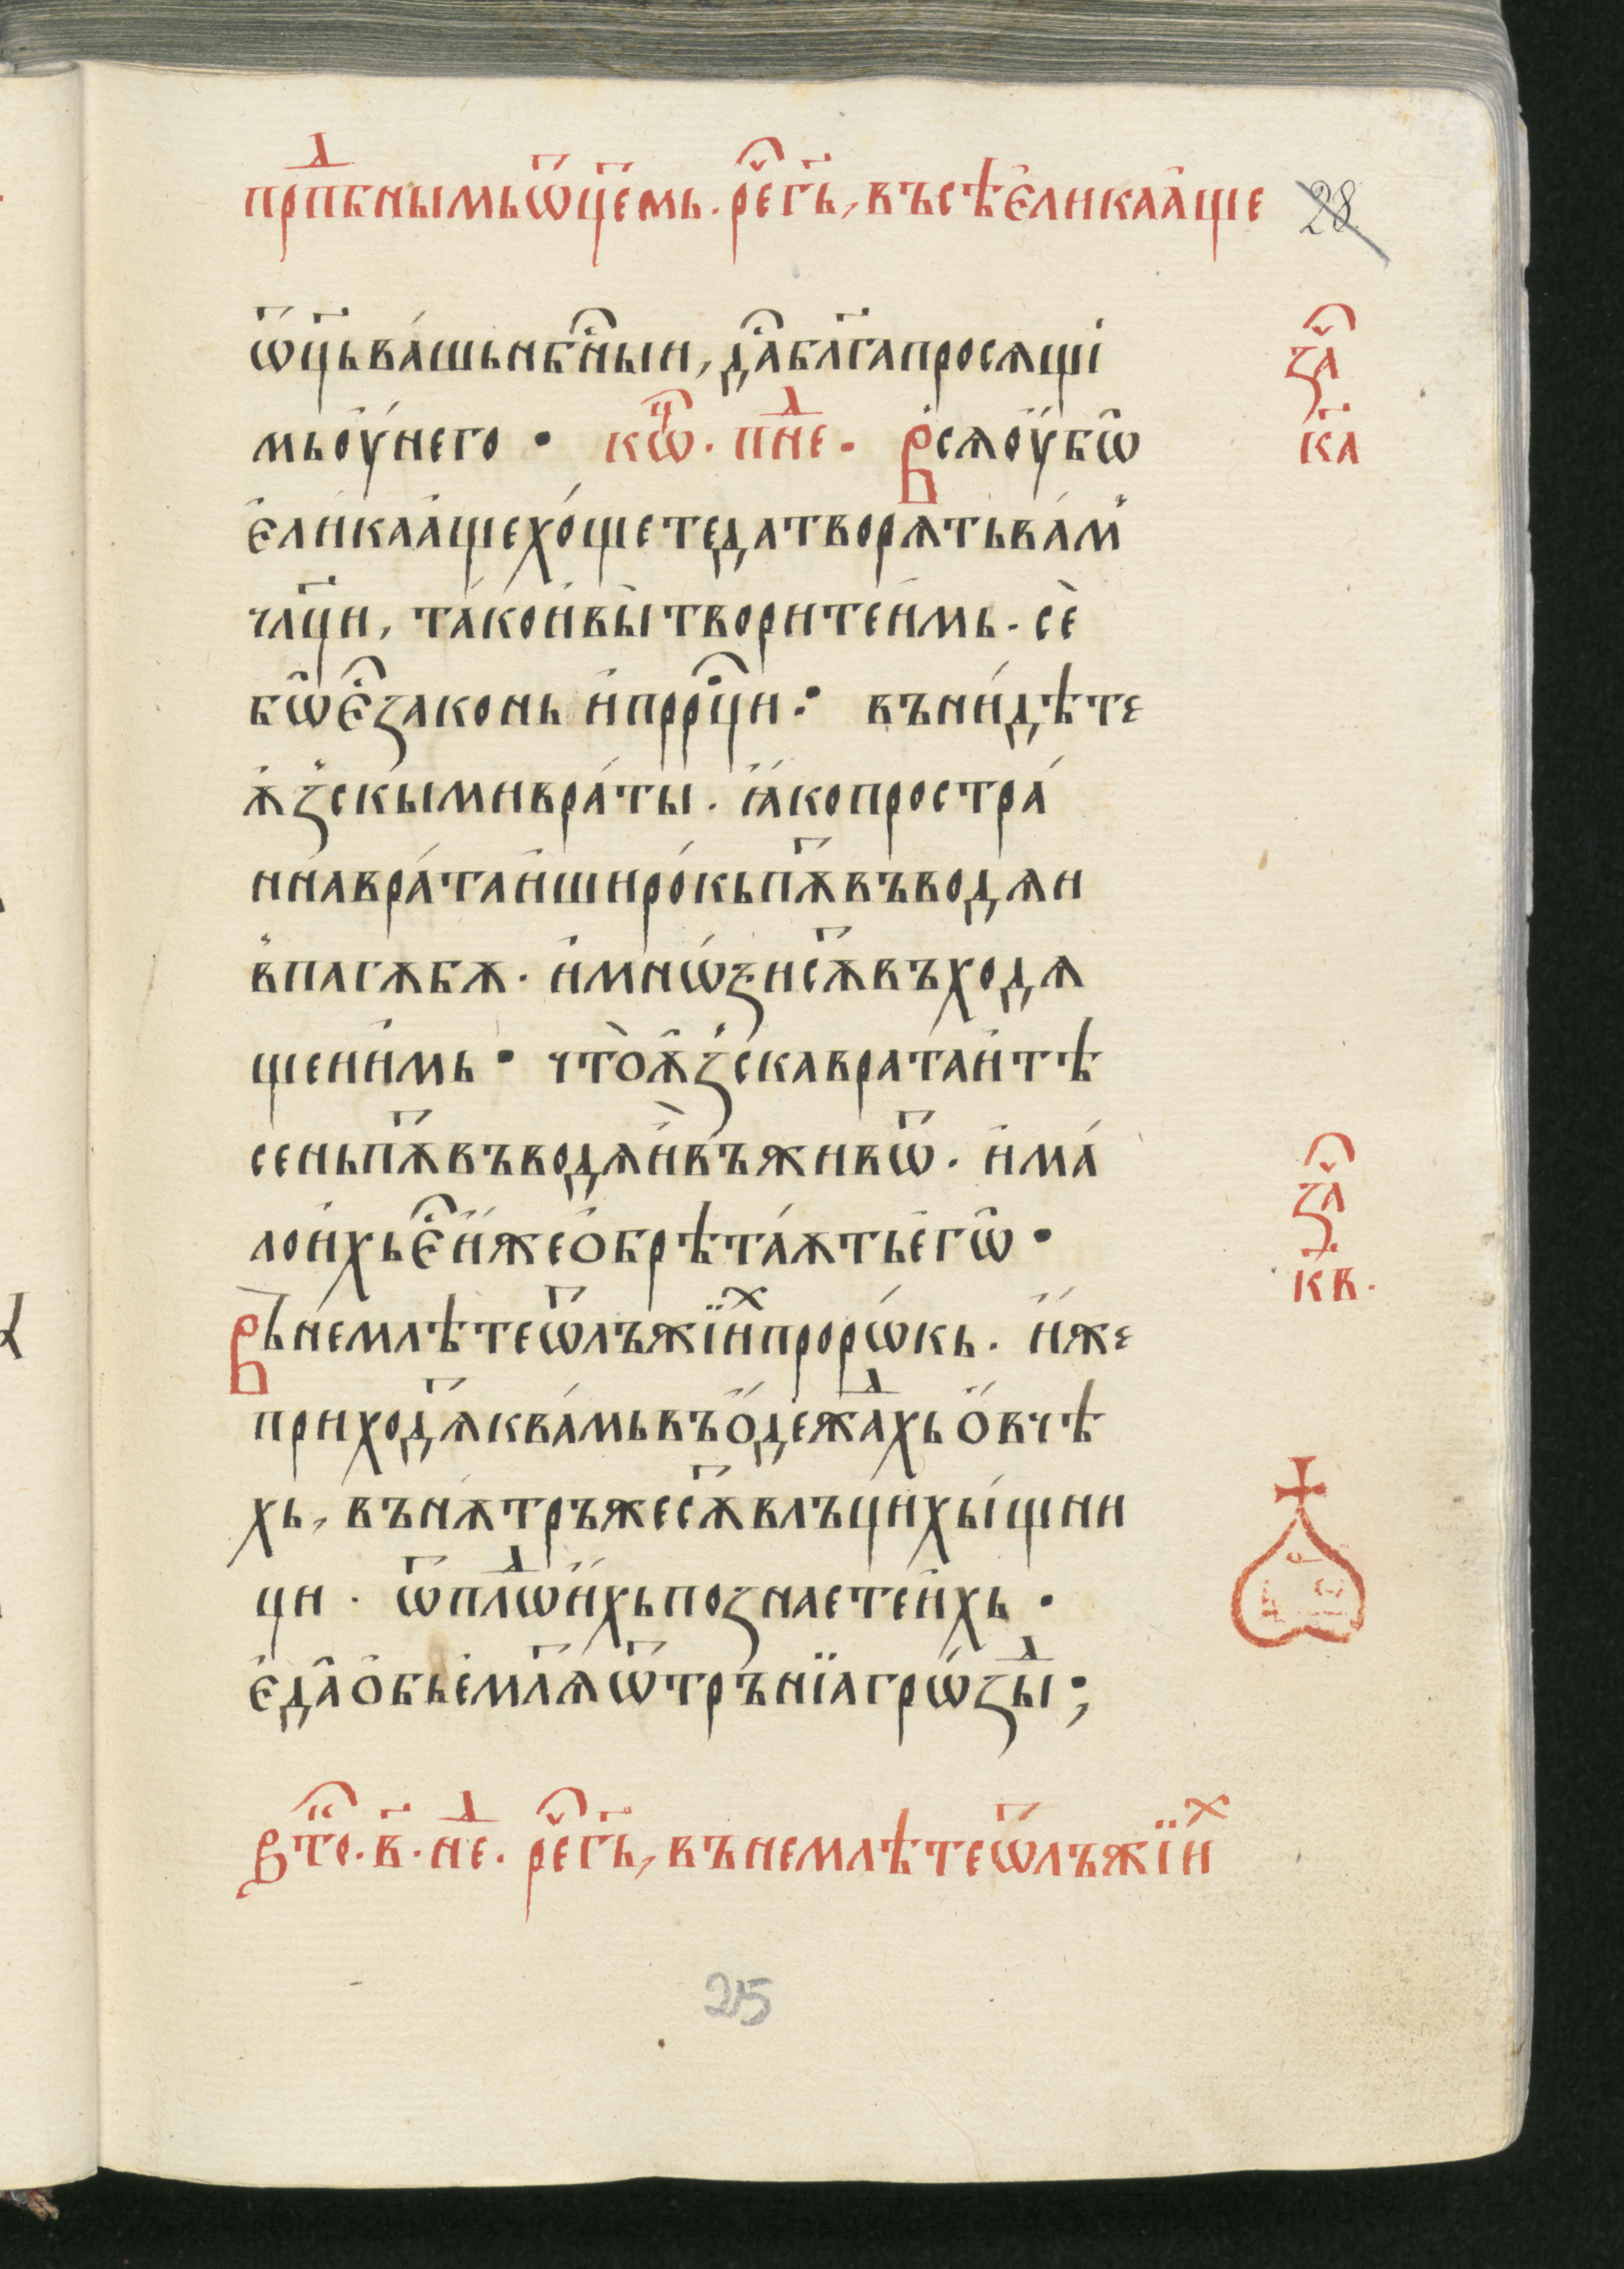 прⷣпбнымь ѿц҃емь. реⷱг҃ь, въсѣ є҆лика а҆ще
28
ѿц҃ь ва́шь нбⷭ҇ныи, дⷭ҇а бл҃га просѧщі
мь оу҆ не́го • кѡⷰ҇. пнⷣе. Всѧ оу҆бѡ
є҆ли́ка а҆ще хо́щете да творѧть ва́м̾
чл҃ци, та́ко и҆ вы̀ творите и҆́мь. сѐ
бѡ є҆ⷭ҇ законь и҆ прⷪ҇рци : въни́дѣте
ѫ҆з̾скы́ми вра́ты. ꙗ҆́ко простра́
нна вра́та и҆ широ́кь пѫ҃ въводѧи
в̾ пагѫбѫ. и҆ мнѡ́ѕи сѫ҃ въходѧ
щеи и҆́мь • что̀ ѫ҆́з̾ска врата и҆ тѣ
сень пѫ҃ въводѧи҆ въ̀ живѿ. и҆ ма́
ло и҆хь є҆ⷭ҇ и҆̀же ѻ҆брѣта́ѫть е҆гѡ̀ •
Вь̀немлѣте ѿ лъжїиⷯ пророѡ́кь. и҆̀же
приход҃ѧ к ва́мь въ ѻ҆̀дежⷣахь ѻ҆́вчѣ
хь, вънѫ́тръже сѫ҃ влъци хы́щни
ци. ѿ плⷣѡ и҆́хь познаете и҆́хь •
є҆да̀ ѻ҆бьемл҃ѧ ѿ тръ́нїа грѡ́зⷣы ;
Втⷪ҇. в҃. нⷣе. реⷱг҃ь, вънемлѣте ѿ лъжїиⷯ
25
заⷱ҇
к҃а
заⷱ҇
к҃в.